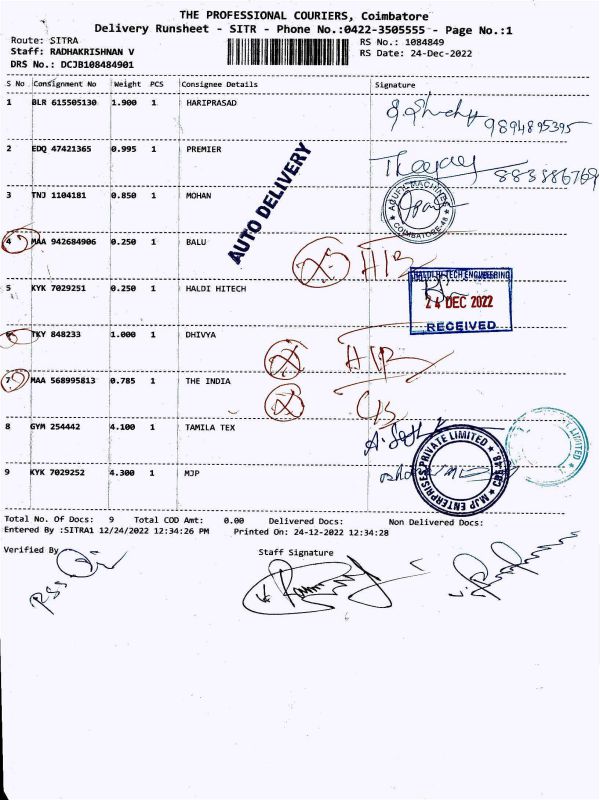 THE PROFESSIONAL COURIERS, Coimbatore
Delivery Runsheet - SITR - Phone No.:0422-3505555 - Page No.:1
Route: SITRA
RS No.: 1084849
Staff: RADHAKRISHNAN V
RS Date: 24-Dec-2022
DRS No.: DCJB108484901
S No Consignment No Weight PCS Consignee Details Signature
1 BLR 615505130 1.900 1 HARIPRASAD
9894895395
2 EDQ 47421365 0.995 1 PREMIER
AUTO DELIVERY
3 TNJ 1104181 0.850 1 MOHAN
COIMBATORE-48
4 MAA 942684906 0.250 1 BALU
5 KYK 7029251 0.250 1 HALDI HITECH
HALDI HI TECH ENGINEERING
24 DEC 2022
RECEIVED
6 TKY 848233 1.000 1 DHIVYA
7 MAA 568995813 0.785 1 THE INDIA
8 GYM 254442 4.100 1 TAMILA TEX
MJP ENTERPRISES PRIVATE LIMITED
9 KYK 7029252 4.300 1 MJP
Total No. Of Docs: 9 Total COD Amt: 0.00 Delivered Docs: Non Delivered Docs:
Entered By :SITRA1 12/24/2022 12:34:26 PM Printed On: 24-12-2022 12:34:28
Verified By
Staff Signature